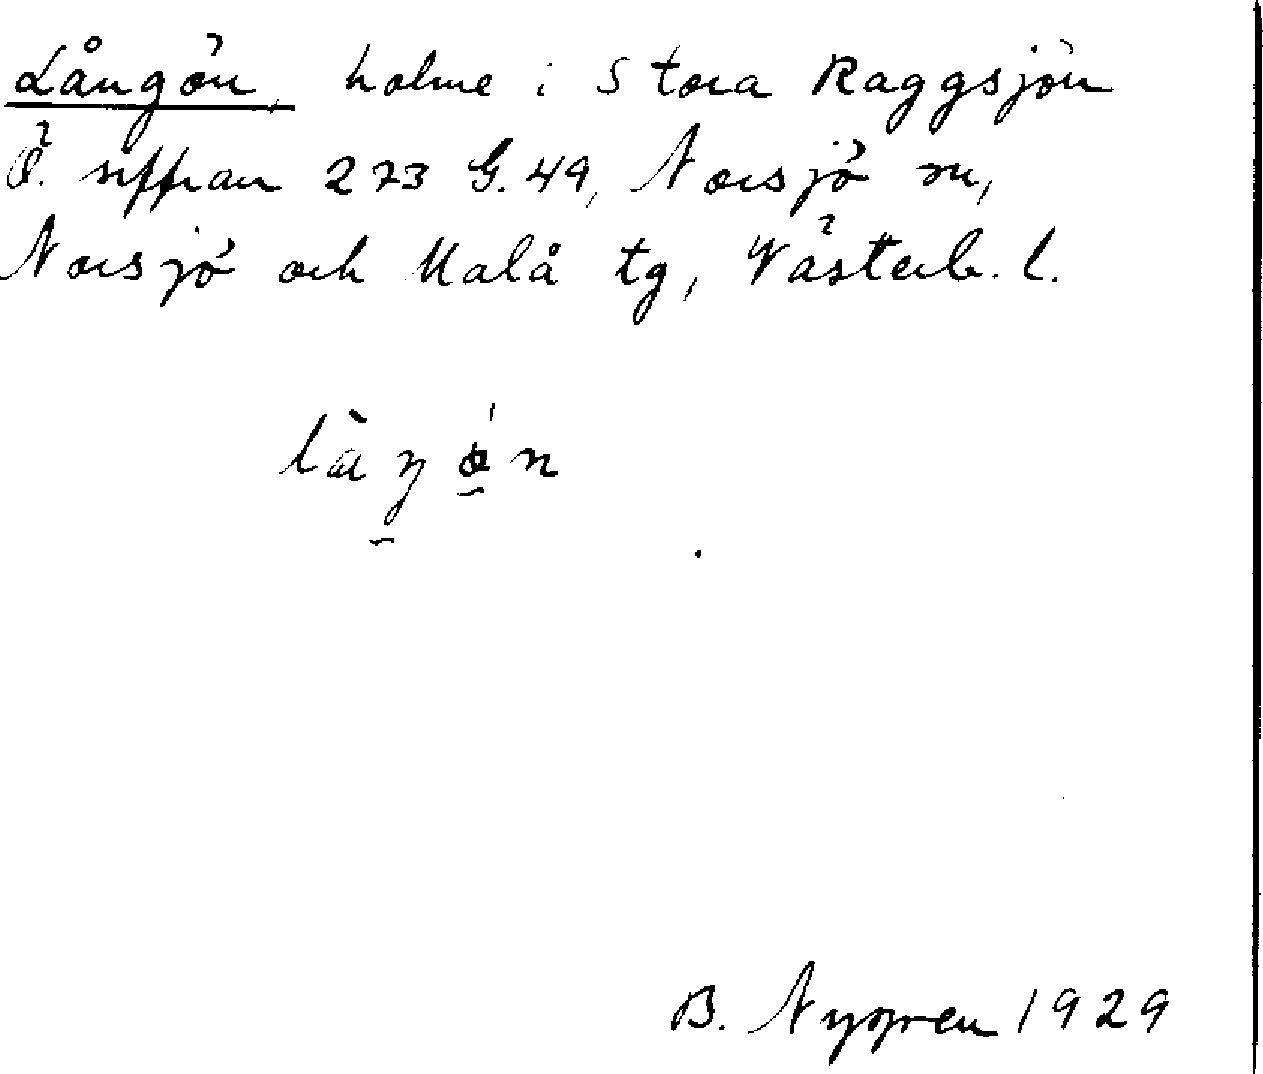 Långön, holme i Stora Raggsjön
Ö. siffran 273 G. 49, Norsjö sn,
Norsjö och Malå tg, Västerb. l.
B. Nygren 1929